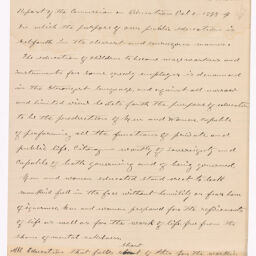 Report of the Commission on Education Oct 1.
in which the purpose of our public education is
set forth in the clearest and manner.
The education of children to become wage earners and
instruments for some greedy employer is denounced
in the strongest language and against all narrow
and limited views to state forth the purpose of education
to be the production of Men and Women capable
of performing all the functions of private and
public life. Citizens worthy of sovereignty and
capable of both governing and of being governed,
Men and women educated stand erect & hold
mankind full in the face without humility or fear born
of ignorance, Men and women prepared for the refinements
of life as well as for the work of life, free from the
shame of mental nakedness.
short
All Education that falls of this for the